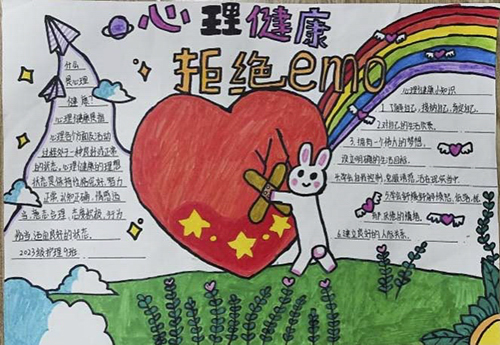 心理健康
拒绝emo
什么
是心理
健康?
心理健康是指
心理各个方面及活动
过程处于一种良好或正常
的状态。心理健康的理想
状态是保持性格完好、智力
正常、认知正确、情感适
当、意志合理、态度积极、行为
恰当、适应良好的状态。
2023级护理9班
心理健康小知识
1.了解自己,接纳自己,肯定自己。
2.对自己的生活负责。
3.拥有一个伟大的梦想,
设立明确的生活目标。
6.建立良好的人际关系。